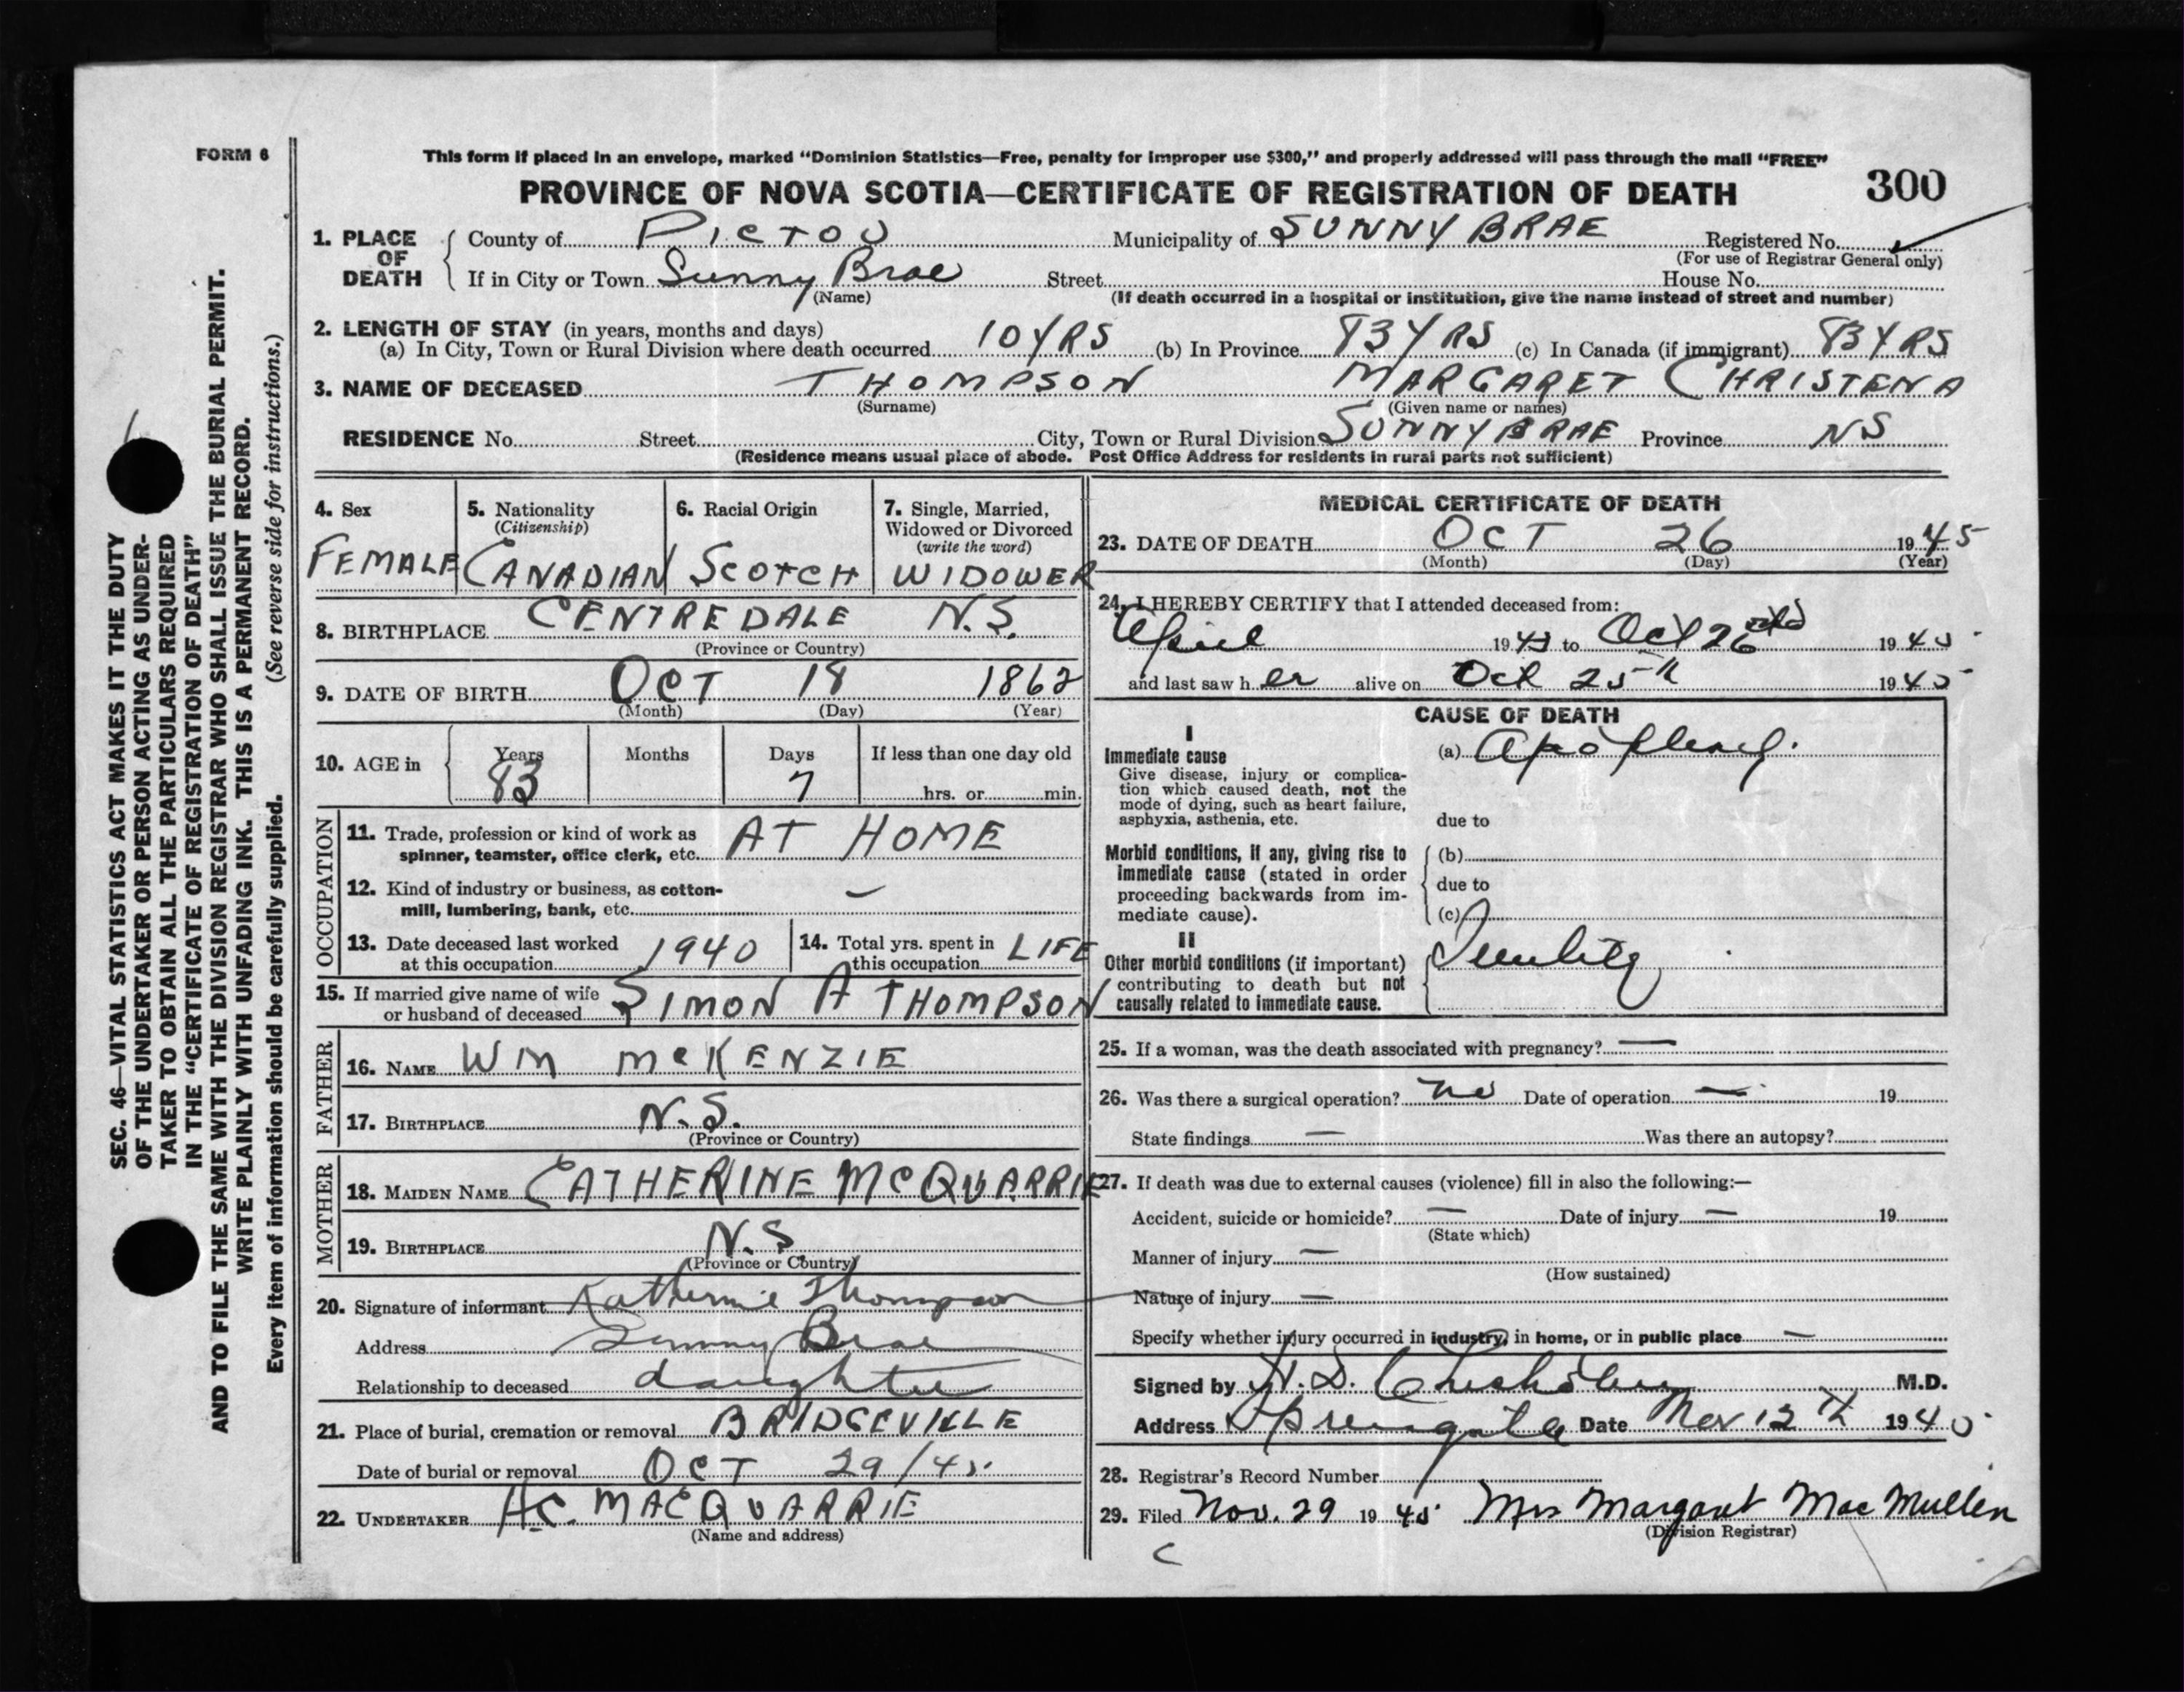 FORM 6
This form if placed in an envelope, marked "Dominion Statistics—Free, penalty for improper use $300," and properly addressed will pass through the mail "FREE"
PROVINCE OF NOVA SCOTIA—CERTIFICATE OF REGISTRATION OF DEATH 300
1. PLACE OF DEATH
County of PICTOU Municipality of SUNNY BRAE Registered No.
(For use of Registrar General only)
If in City or Town Sunny Brae Street House No.
(Name) (If death occurred in a hospital or institution, give the name instead of street and number)
2. LENGTH OF STAY (in years, months and days)
(a) In City, Town or Rural Division where death occurred 10 YRS (b) In Province 83 YRS (c) In Canada (if immigrant) 83 YRS
3. NAME OF DECEASED THOMPSON MARGARET CHRISTENA
(Surname) (Given name or names)
RESIDENCE No. Street City, Town or Rural Division SUNNY BRAE Province NS
(Residence means usual place of abode. Post Office Address for residents in rural parts not sufficient)
4. Sex
FEMALE
5. Nationality
(Citizenship)
CANADIAN
6. Racial Origin
SCOTCH
7. Single, Married,
Widowed or Divorced
(write the word)
WIDOWER
8. BIRTHPLACE CENTREDALE N.S.
(Province or Country)
9. DATE OF BIRTH OCT 18 1862
(Month) (Day) (Year)
10. AGE in Years Months Days If less than one day old
83 7 hrs. or min.
OCCUPATION
11. Trade, profession or kind of work as
spinner, teamster, office clerk, etc. AT HOME
12. Kind of industry or business, as cotton-
mill, lumbering, bank, etc. —
13. Date deceased last worked
at this occupation 1940
14. Total yrs. spent in
this occupation LIFE
15. If married give name of wife
or husband of deceased SIMON A THOMPSON
FATHER
16. NAME WM McKENZIE
17. BIRTHPLACE N.S.
(Province or Country)
MOTHER
18. MAIDEN NAME CATHERINE McQUARRIE
19. BIRTHPLACE N.S.
(Province or Country)
20. Signature of informant Katherine Thompson
Address Sunny Brae
Relationship to deceased daughter
21. Place of burial, cremation or removal BRIDGEVILLE
Date of burial or removal OCT 29/45
22. UNDERTAKER H.C. MACQUARRIE
(Name and address)
MEDICAL CERTIFICATE OF DEATH
23. DATE OF DEATH OCT 26 1945
(Month) (Day) (Year)
24. I HEREBY CERTIFY that I attended deceased from:
April 19 to Oct 26 1945
and last saw her alive on Oct 25th 1945
CAUSE OF DEATH
I
Immediate cause
Give disease, injury or complica-
tion which caused death, not the
mode of dying, such as heart failure,
asphyxia, asthenia, etc.
(a) Apoplexy.
due to
Morbid conditions, if any, giving rise to
immediate cause (stated in order
proceeding backwards from im-
mediate cause).
(b)
due to
(c)
II
Other morbid conditions (if important)
contributing to death but not
causally related to immediate cause.
Senility
25. If a woman, was the death associated with pregnancy? —
26. Was there a surgical operation? no Date of operation — 19
State findings — Was there an autopsy?
27. If death was due to external causes (violence) fill in also the following:—
Accident, suicide or homicide? — Date of injury — 19
(State which)
Manner of injury —
(How sustained)
Nature of injury —
Specify whether injury occurred in industry, in home, or in public place —
Signed by H. D. Chisholm M.D.
Address Date Nov 12th 1945
28. Registrar's Record Number
29. Filed Nov. 29 1945 Mrs Margaret MacMullen
(Division Registrar)
SEC. 46—VITAL STATISTICS ACT MAKES IT THE DUTY
OF THE UNDERTAKER OR PERSON ACTING AS UNDER-
TAKER TO OBTAIN ALL THE PARTICULARS REQUIRED
IN THE "CERTIFICATE OF REGISTRATION OF DEATH"
AND TO FILE THE SAME WITH THE DIVISION REGISTRAR WHO SHALL ISSUE THE BURIAL PERMIT.
WRITE PLAINLY WITH UNFADING INK. THIS IS A PERMANENT RECORD.
Every item of information should be carefully supplied. (See reverse side for instructions.)